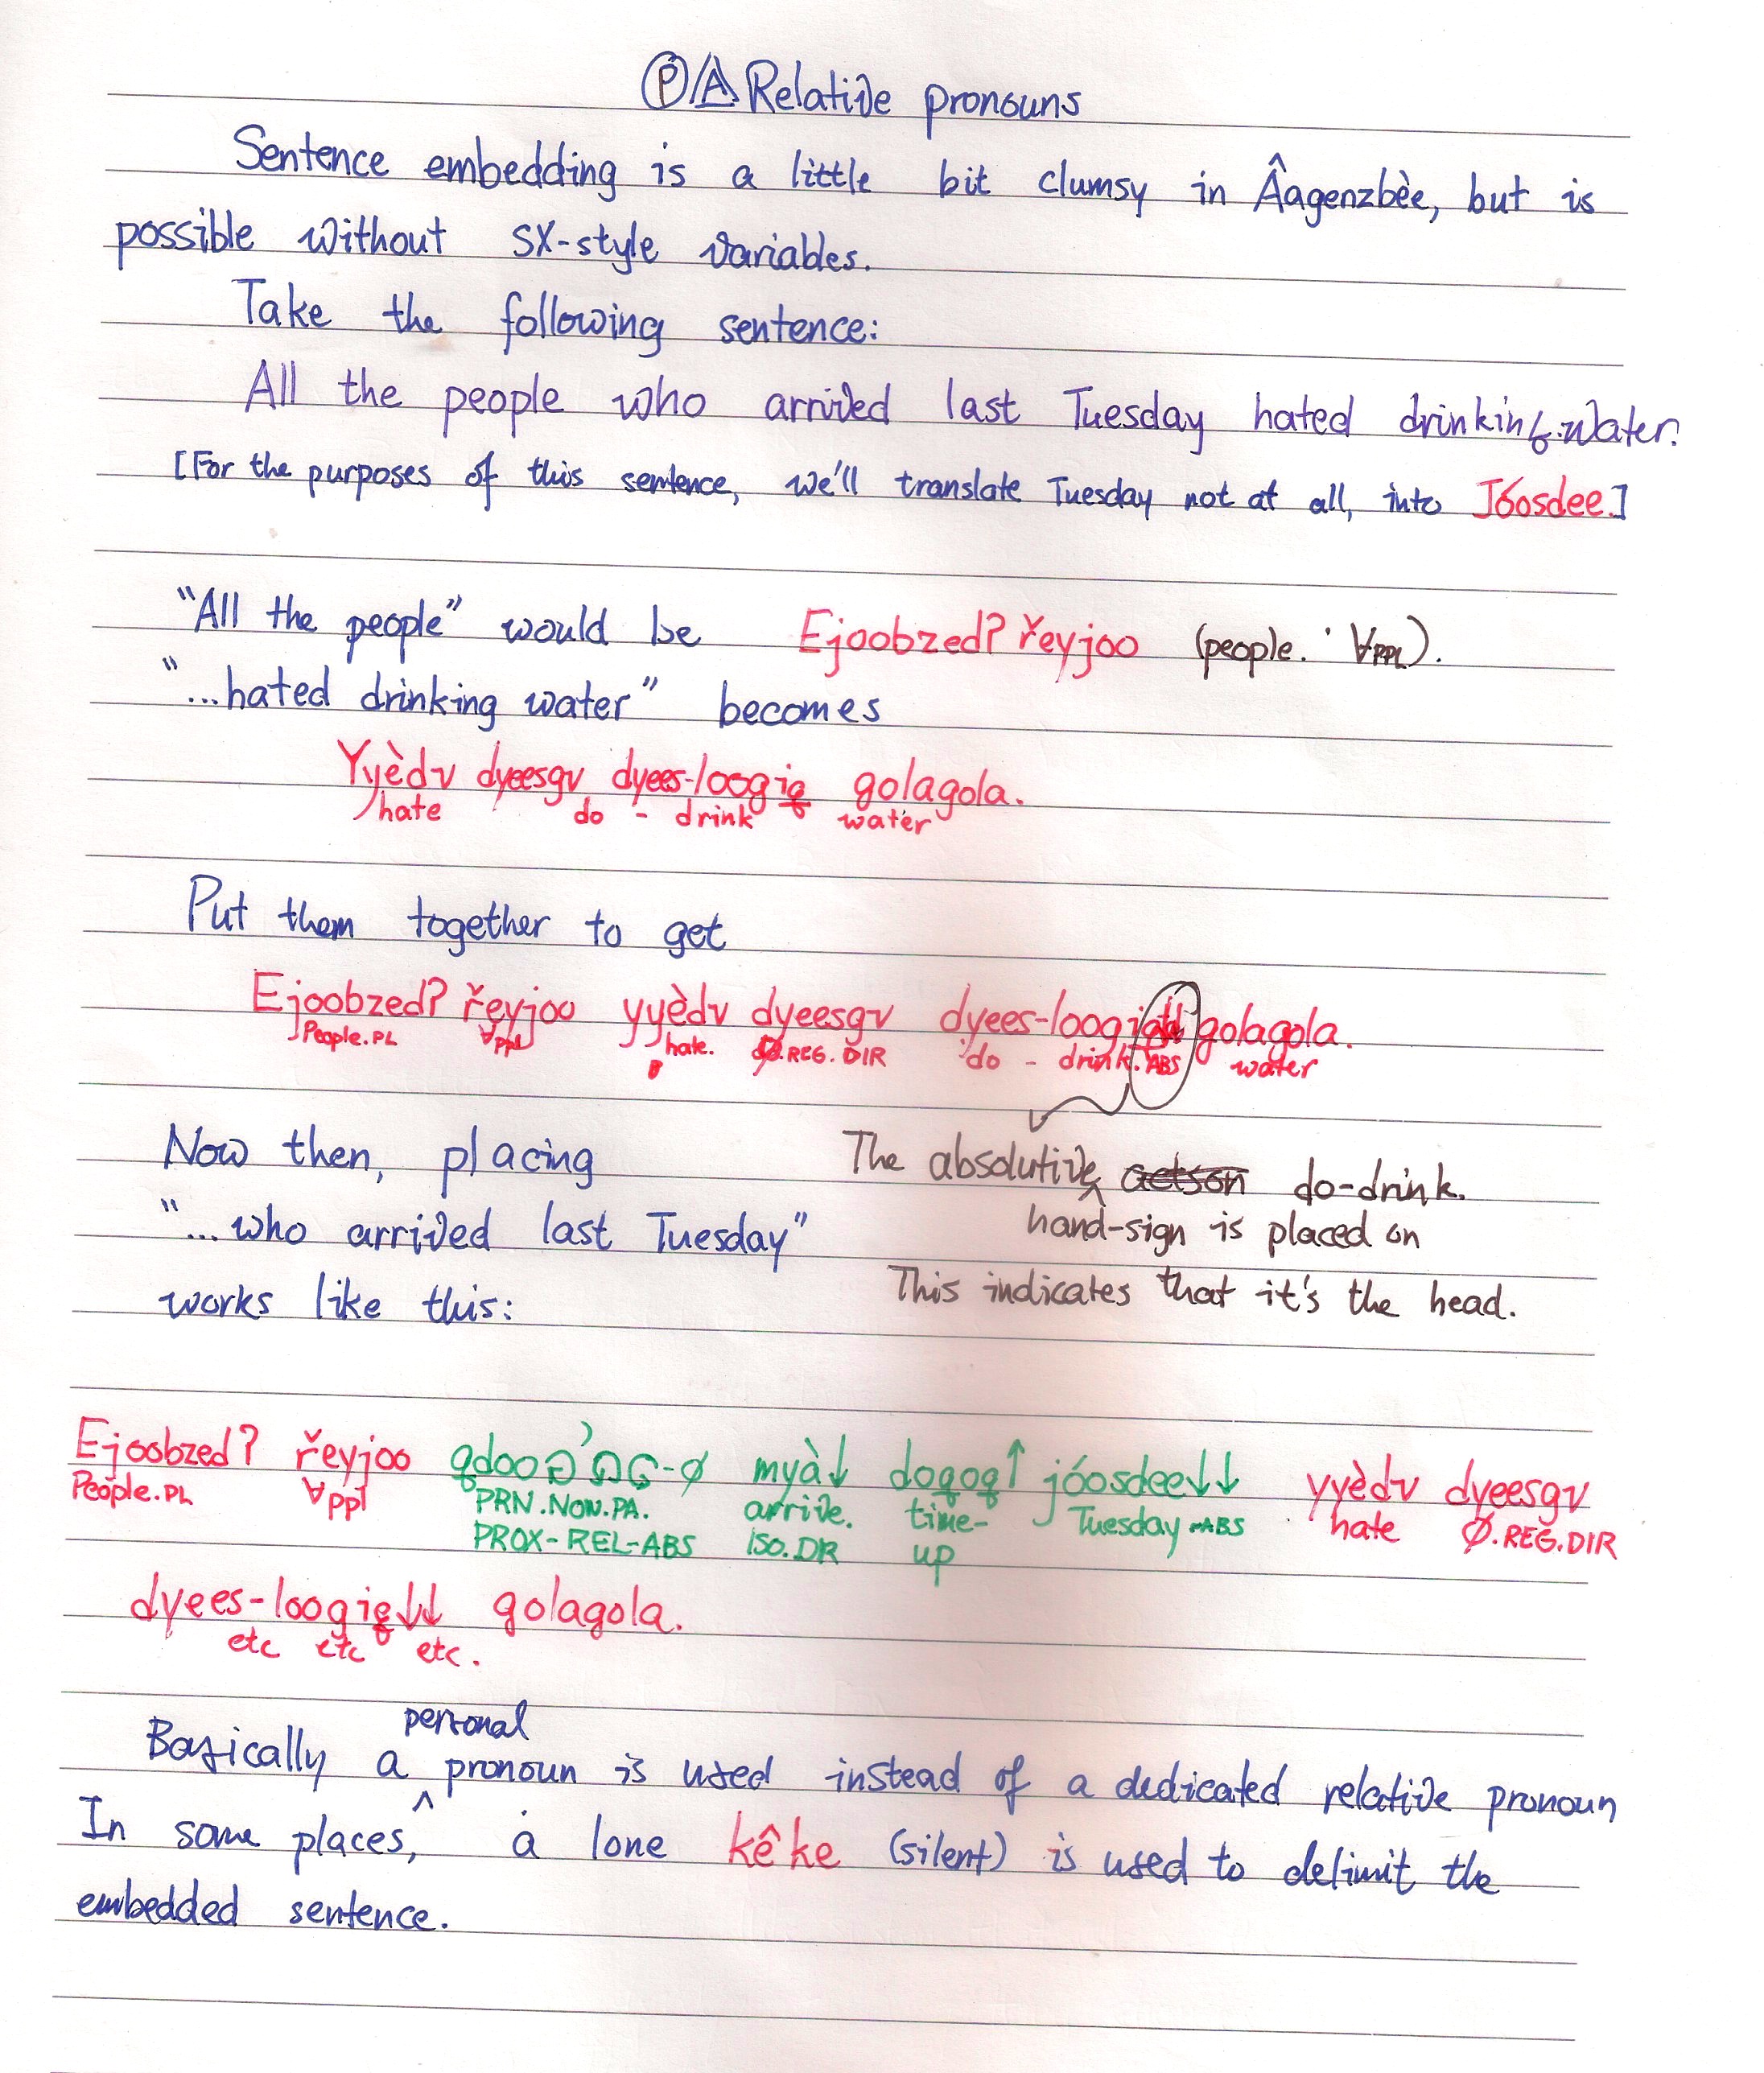 Ⓟ Relative pronouns
Sentence embedding is a little bit clumsy in Âagenzbèe, but is
possible without SX-style variables.
Take the following sentence:
All the people who arrived last Tuesday hated drinking water.
[For the purposes of this sentence, we'll translate Tuesday not at all, into Jóosdee.]
"All the people" would be Ejoobzed? řeyjoo (people. ∀PPL).
"...hated drinking water" becomes
Yyèdv dyeesgv dyees-loogiq golagola.
hate do - drink water
Put them together to get
Ejoobzed? řeyjoo yyèdv dyeesgv golagola.
People.PL ∀ppl hate. Ø.REG.DIR do - drink.ABS water
Now then, placing
"...who arrived last Tuesday"
works like this:
The absolutive hand-sign is placed on do-drink.
This indicates that it's the head.
Ejoobzed? řeyjoo myà↓ doqoq↑ jóosdee↓↓ yyèdv dyeesgv
People.PL ∀ppl PRN.NON.PA. arrive. time- Tuesday-ABS hate Ø.REG.DIR
PROX-REL-ABS ISO.DIR up
dyees-loogiq↓↓ golagola.
etc etc etc.
Basically a personal pronoun is used instead of a dedicated relative pronoun
In some places, a lone kêke (silent) is used to delimit the
embedded sentence.